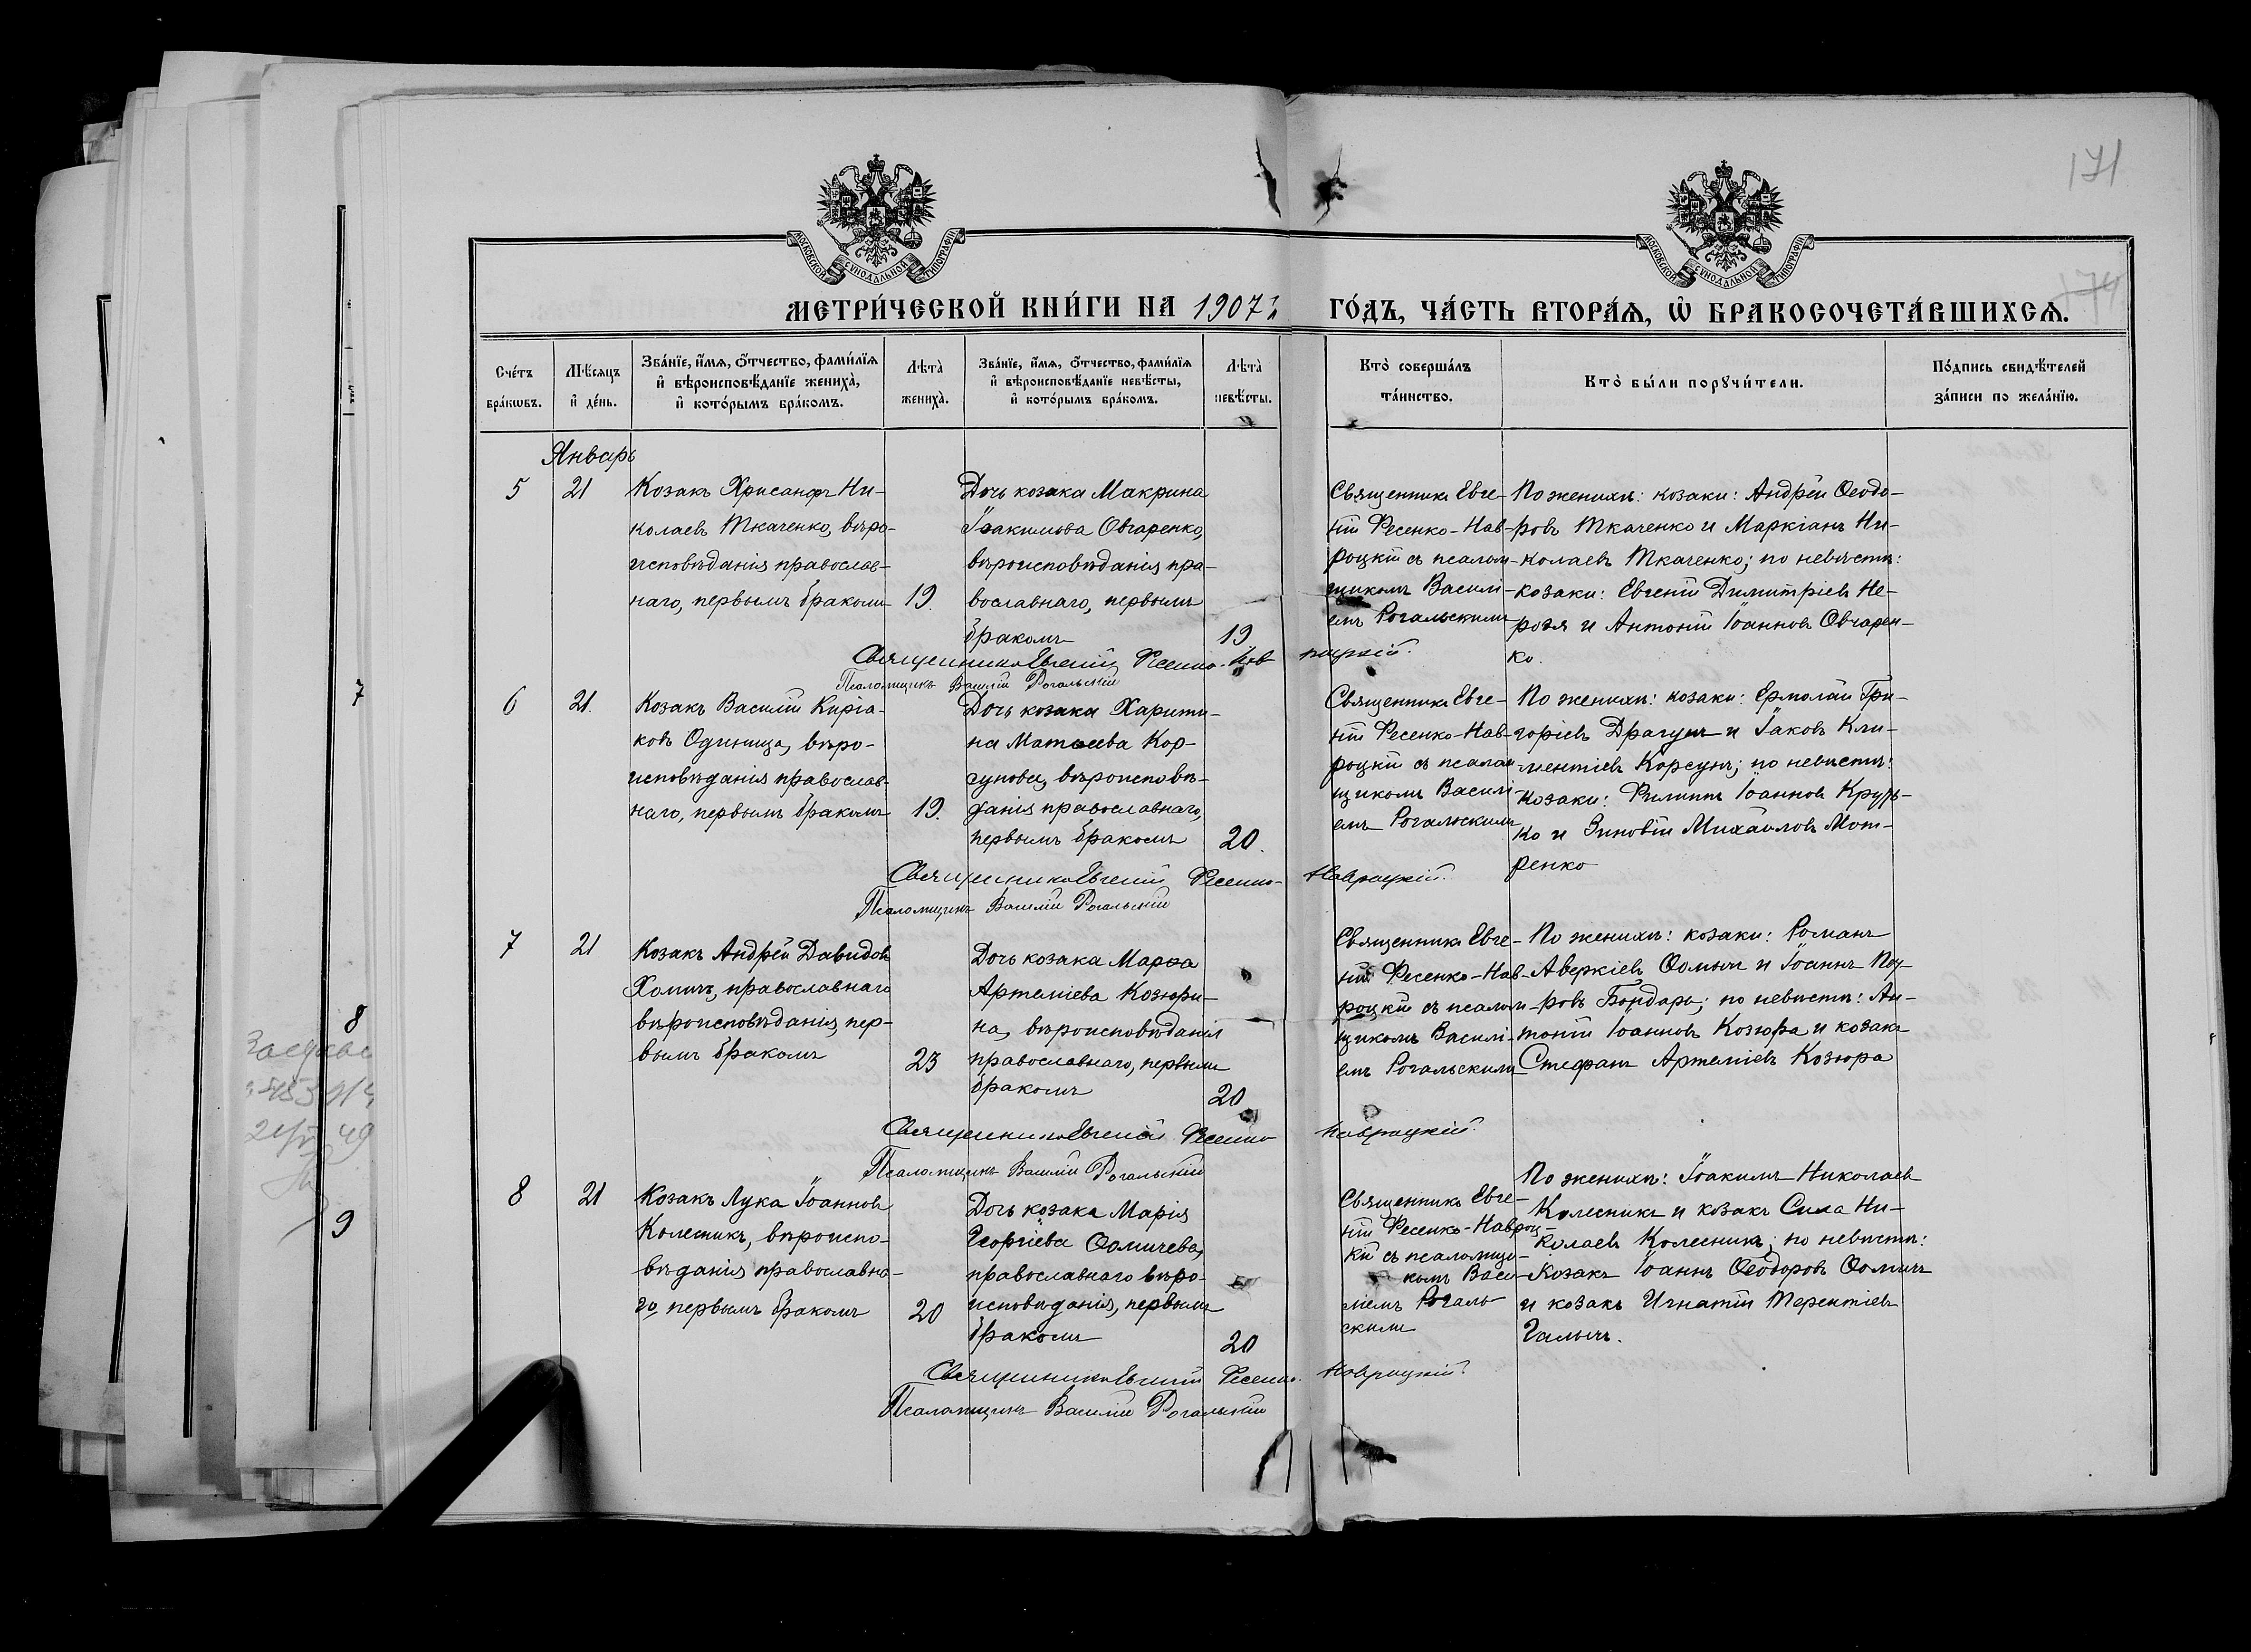 171
174
МОСКОВСКОЙ СѴНОДАЛЬНОЙ ТИПОГРАФІИ
МОСКОВСКОЙ СѴНОДАЛЬНОЙ ТИПОГРАФІИ
МЕТРИ́ЧЕСКОЙ КНИ́ГИ НА 1907 й ГО́ДЪ, ЧА́СТЬ ВТОРА́Ѧ, Ѽ БРАКОСОЧЕТА́ВШИХСѦ.
Сче́тъ
бра́кѡвъ.
Мѣ́сѧцъ
и҆ де́нь.
Зва́нїе, и҆́мѧ, ѻ҆́тчество, фами́лїѧ
и҆ вѣроисповѣ́данїе жениха̀,
и҆ кото́рымъ бра́комъ.
Лѣта̀
жениха̀.
Зва́нїе, и҆́мѧ, ѻ҆́тчество, фами́лїѧ
и҆ вѣроисповѣ́данїе невѣ́сты,
и҆ кото́рымъ бра́комъ.
Лѣта̀
невѣ́сты.
Кто̀ соверша́лъ
та́инство.
Кто̀ бы́ли порꙋчи́тели.
По́дпись свидѣ́телей
за́писи по жела́нїю.
Январь
5
21
Козакъ Хрисанфъ Ни-
колаевъ Ткаченко, вѣро-
исповѣданія православ-
наго, первымъ бракомъ
19.
Дочь козака Макрина
Іоакимова Овчаренко,
вѣроисповѣданія пра-
вославнаго, первымъ
бракомъ
19
Священникъ Евге-
ній Фесенко-Нав-
роцкій съ псалом-
щикомъ Васили-
емъ Рогальскимъ
По женихѣ: козаки: Андрей Ѳеодо-
ровъ Ткаченко и Маркіанъ Ни-
колаевъ Ткаченко; по невѣстѣ:
козаки: Евгеній Димитріевъ Не-
розя и Антоній Іоанновъ Овчарен-
ко.
Священникъ Евгеній Фесенко-Навроцкій.
Псаломщикъ Василій Рогальскій
6
21.
Козакъ Василій Киріа-
ковъ Одиница, вѣро-
исповѣданія православ-
наго, первымъ бракомъ
19.
Дочь козака Харити-
на Матѳеева Кор-
сунова, вѣроисповѣ-
данія православнаго,
первымъ бракомъ
20.
Священникъ Евге-
ній Фесенко-Нав-
роцкій съ псалом-
щикомъ Васили-
емъ Рогальскимъ
По женихѣ: козаки: Ермолай Гри-
горіевъ Драгунъ и Іаковъ Кли-
ментіевъ Корсунъ; по невѣстѣ:
козаки: Филиппъ Іоанновъ Крупь-
ко и Зиновій Михаиловъ Мот-
ренко
Священникъ Евгеній Фесенко-Навроцкій.
Псаломщикъ Василій Рогальскій
7
21
Козакъ Андрей Давидовъ
Хомичъ, православнаго
вѣроисповѣданія, пер-
вымъ бракомъ
23
Дочь козака Марѳа
Артеміева Козюри-
на, вѣроисповѣданія
православнаго, первымъ
бракомъ
20
Священникъ Евге-
ній Фесенко-Нав-
роцкій съ псалом-
щикомъ Васили-
емъ Рогальскимъ
По женихѣ: козаки: Романъ
Аверкіевъ Ѳомичъ и Іоаннъ
Бондарь; по невѣстѣ: Ан-
тоній Іоанновъ Козюра и козакъ
Стефанъ Артеміевъ Козюра
Священникъ Евгеній Фесенко Навроцкій.
Псаломщикъ Василій Рогальскій
8
21
Козакъ Лука Іоанновъ
Колесникъ, вѣроиспо-
вѣданія православна-
го, первымъ бракомъ
20
Дочь козака Марія
Георгіева Ѳомичева,
православнаго вѣро-
исповѣданія, первымъ
бракомъ
20
Священникъ Евге-
ній Фесенко-Навроц-
кій съ псаломщи-
комъ Васи-
ліемъ Рогаль-
скимъ
По женихѣ: Іоакимъ Николаевъ
Колесникъ и козакъ Сила Ни-
колаевъ Колесникъ; по невѣстѣ:
Козакъ Іоаннъ Ѳеодоровъ Ѳомичъ
и козакъ Игнатій Терентіевъ
Галычъ.
Священникъ Евгеній Фесенко-Навроцкій.
Псаломщикъ Василій Рогальскій
7
8
9